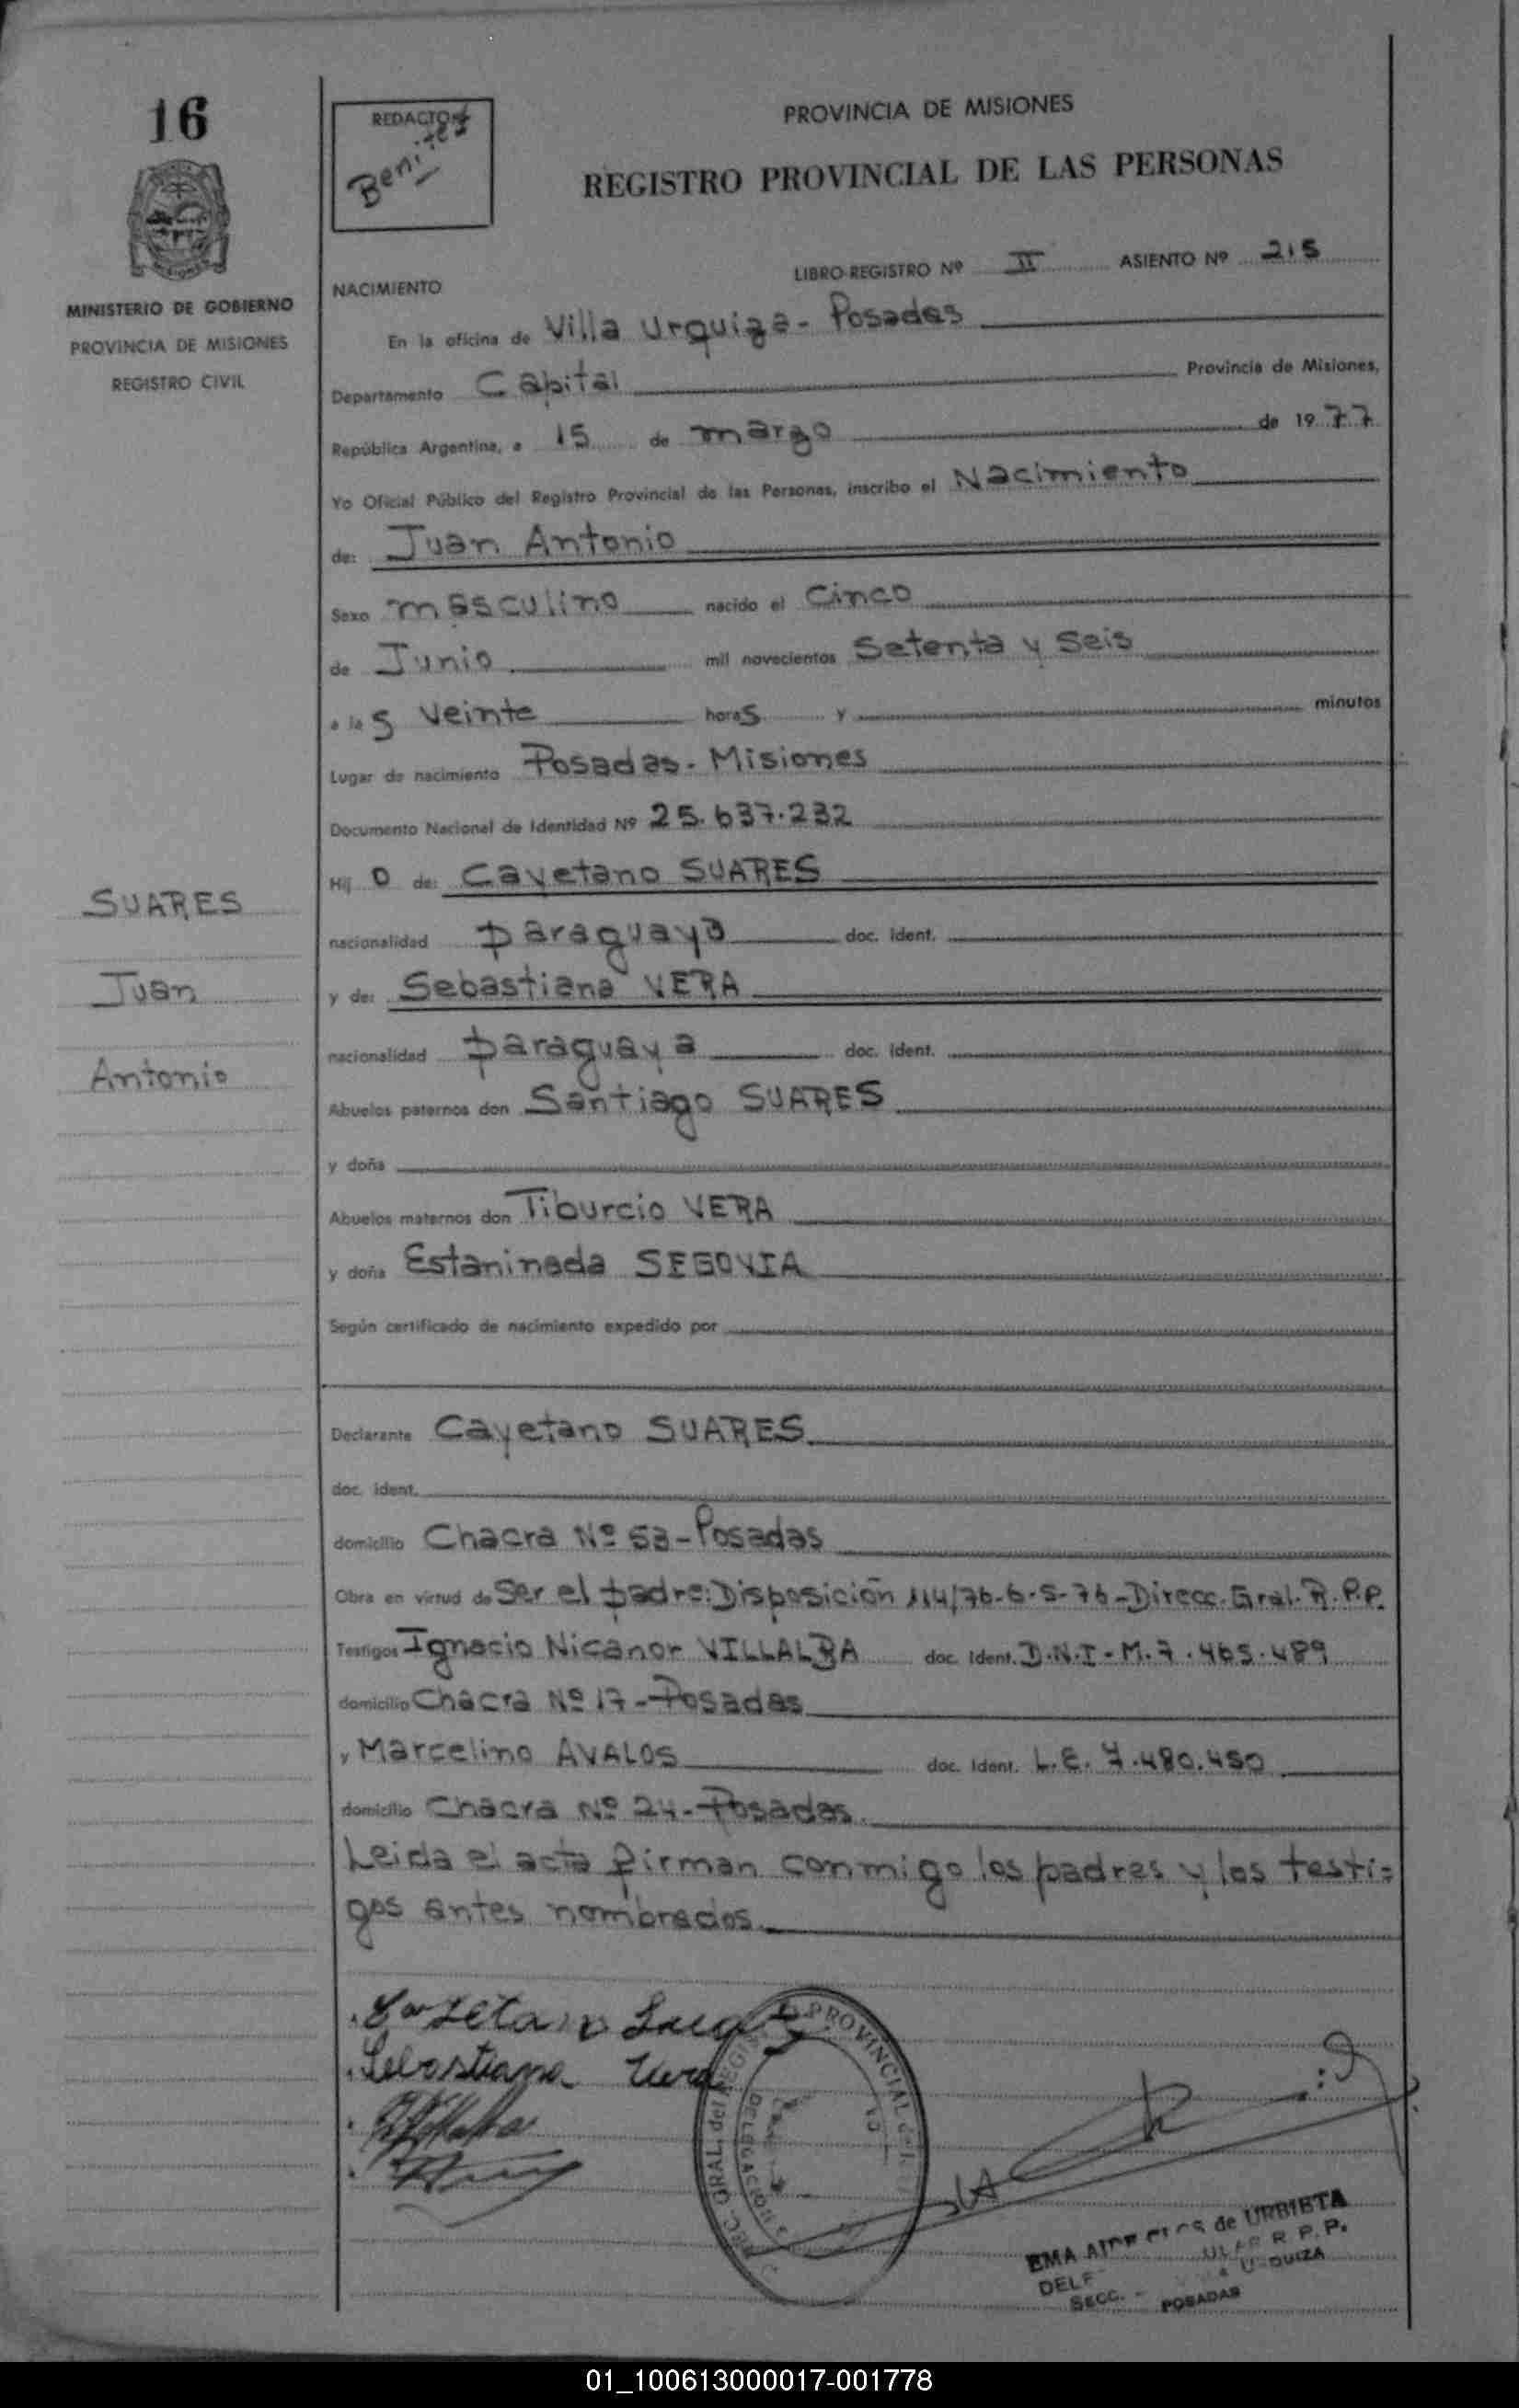 16
REDACTOR
Benitez
PROVINCIA DE MISIONES
REGISTRO PROVINCIAL DE LAS PERSONAS
MINISTERIO DE GOBIERNO
PROVINCIA DE MISIONES
REGISTRO CIVIL
LIBRO-REGISTRO Nº II ASIENTO Nº 215
NACIMIENTO
En la oficina de Villa Urquiza - Posadas
Departamento Capital Provincia de Misiones,
República Argentina, a 15 de marzo de 1977
Yo Oficial Público del Registro Provincial de las Personas, inscribo el Nacimiento
de: Juan Antonio
Sexo masculino nacido el Cinco
de Junio mil novecientos Setenta y Seis
a las veinte horas y minutos
Lugar de nacimiento Posadas - Misiones
Documento Nacional de Identidad Nº 25.637.232
Hijo de: Cayetano SUARES
nacionalidad paraguayo doc. ident.
y de: Sebastiana VERA
nacionalidad paraguaya doc. ident.
Abuelos paternos don Santiago SUARES
y doña
Abuelos maternos don Tiburcio VERA
y doña Estaninada SEGOVIA
Según certificado de nacimiento expedido por
SUARES
Juan
Antonio
Declarante Cayetano SUARES
doc. ident.
domicilio Chacra Nº 53 - Posadas
Obra en virtud de Ser el padre: Disposición 114/76-6-5-76 - Direcc. Gral. R.P.P.
Testigos Ignacio Nicanor VILLALBA doc. Ident. D.N.I - M. 7.465.489
domicilio Chacra Nº 17 - Posadas
y Marcelino AVALOS doc. Ident. L.E. 7.480.450
domicilio Chacra Nº 24 - Posadas.
Leida el acta firman conmigo los padres y los testi=
gos antes nombrados.
Sebastiana Vera
GRAL. del REGIS PROVINCIAL de
DELEGACION
EMA de URBIETA
R. P. P.
SECC.
POSADAS
01_100613000017-001778